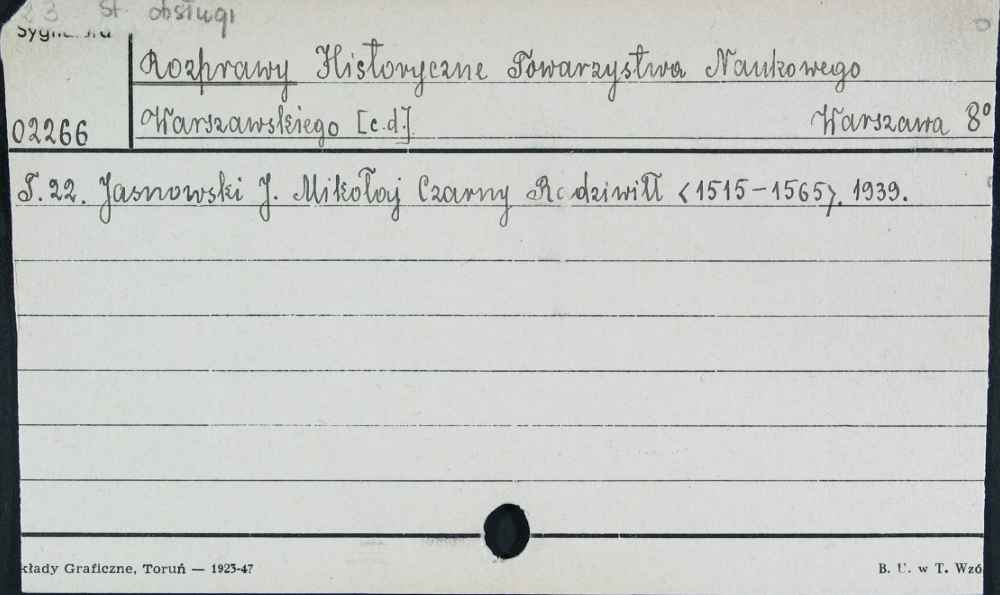 23 st. obsługi
Rozprawy Historyczne Towarzystwa Naukowego
02266 Warszawskiego [c.d.] Warszawa 8°
T. 22. Jasnowski J. Mikołaj Czarny Radziwiłł <1515-1565>. 1939.
kłady Graficzne, Toruń — 1923-47 B. U. w T. Wzó